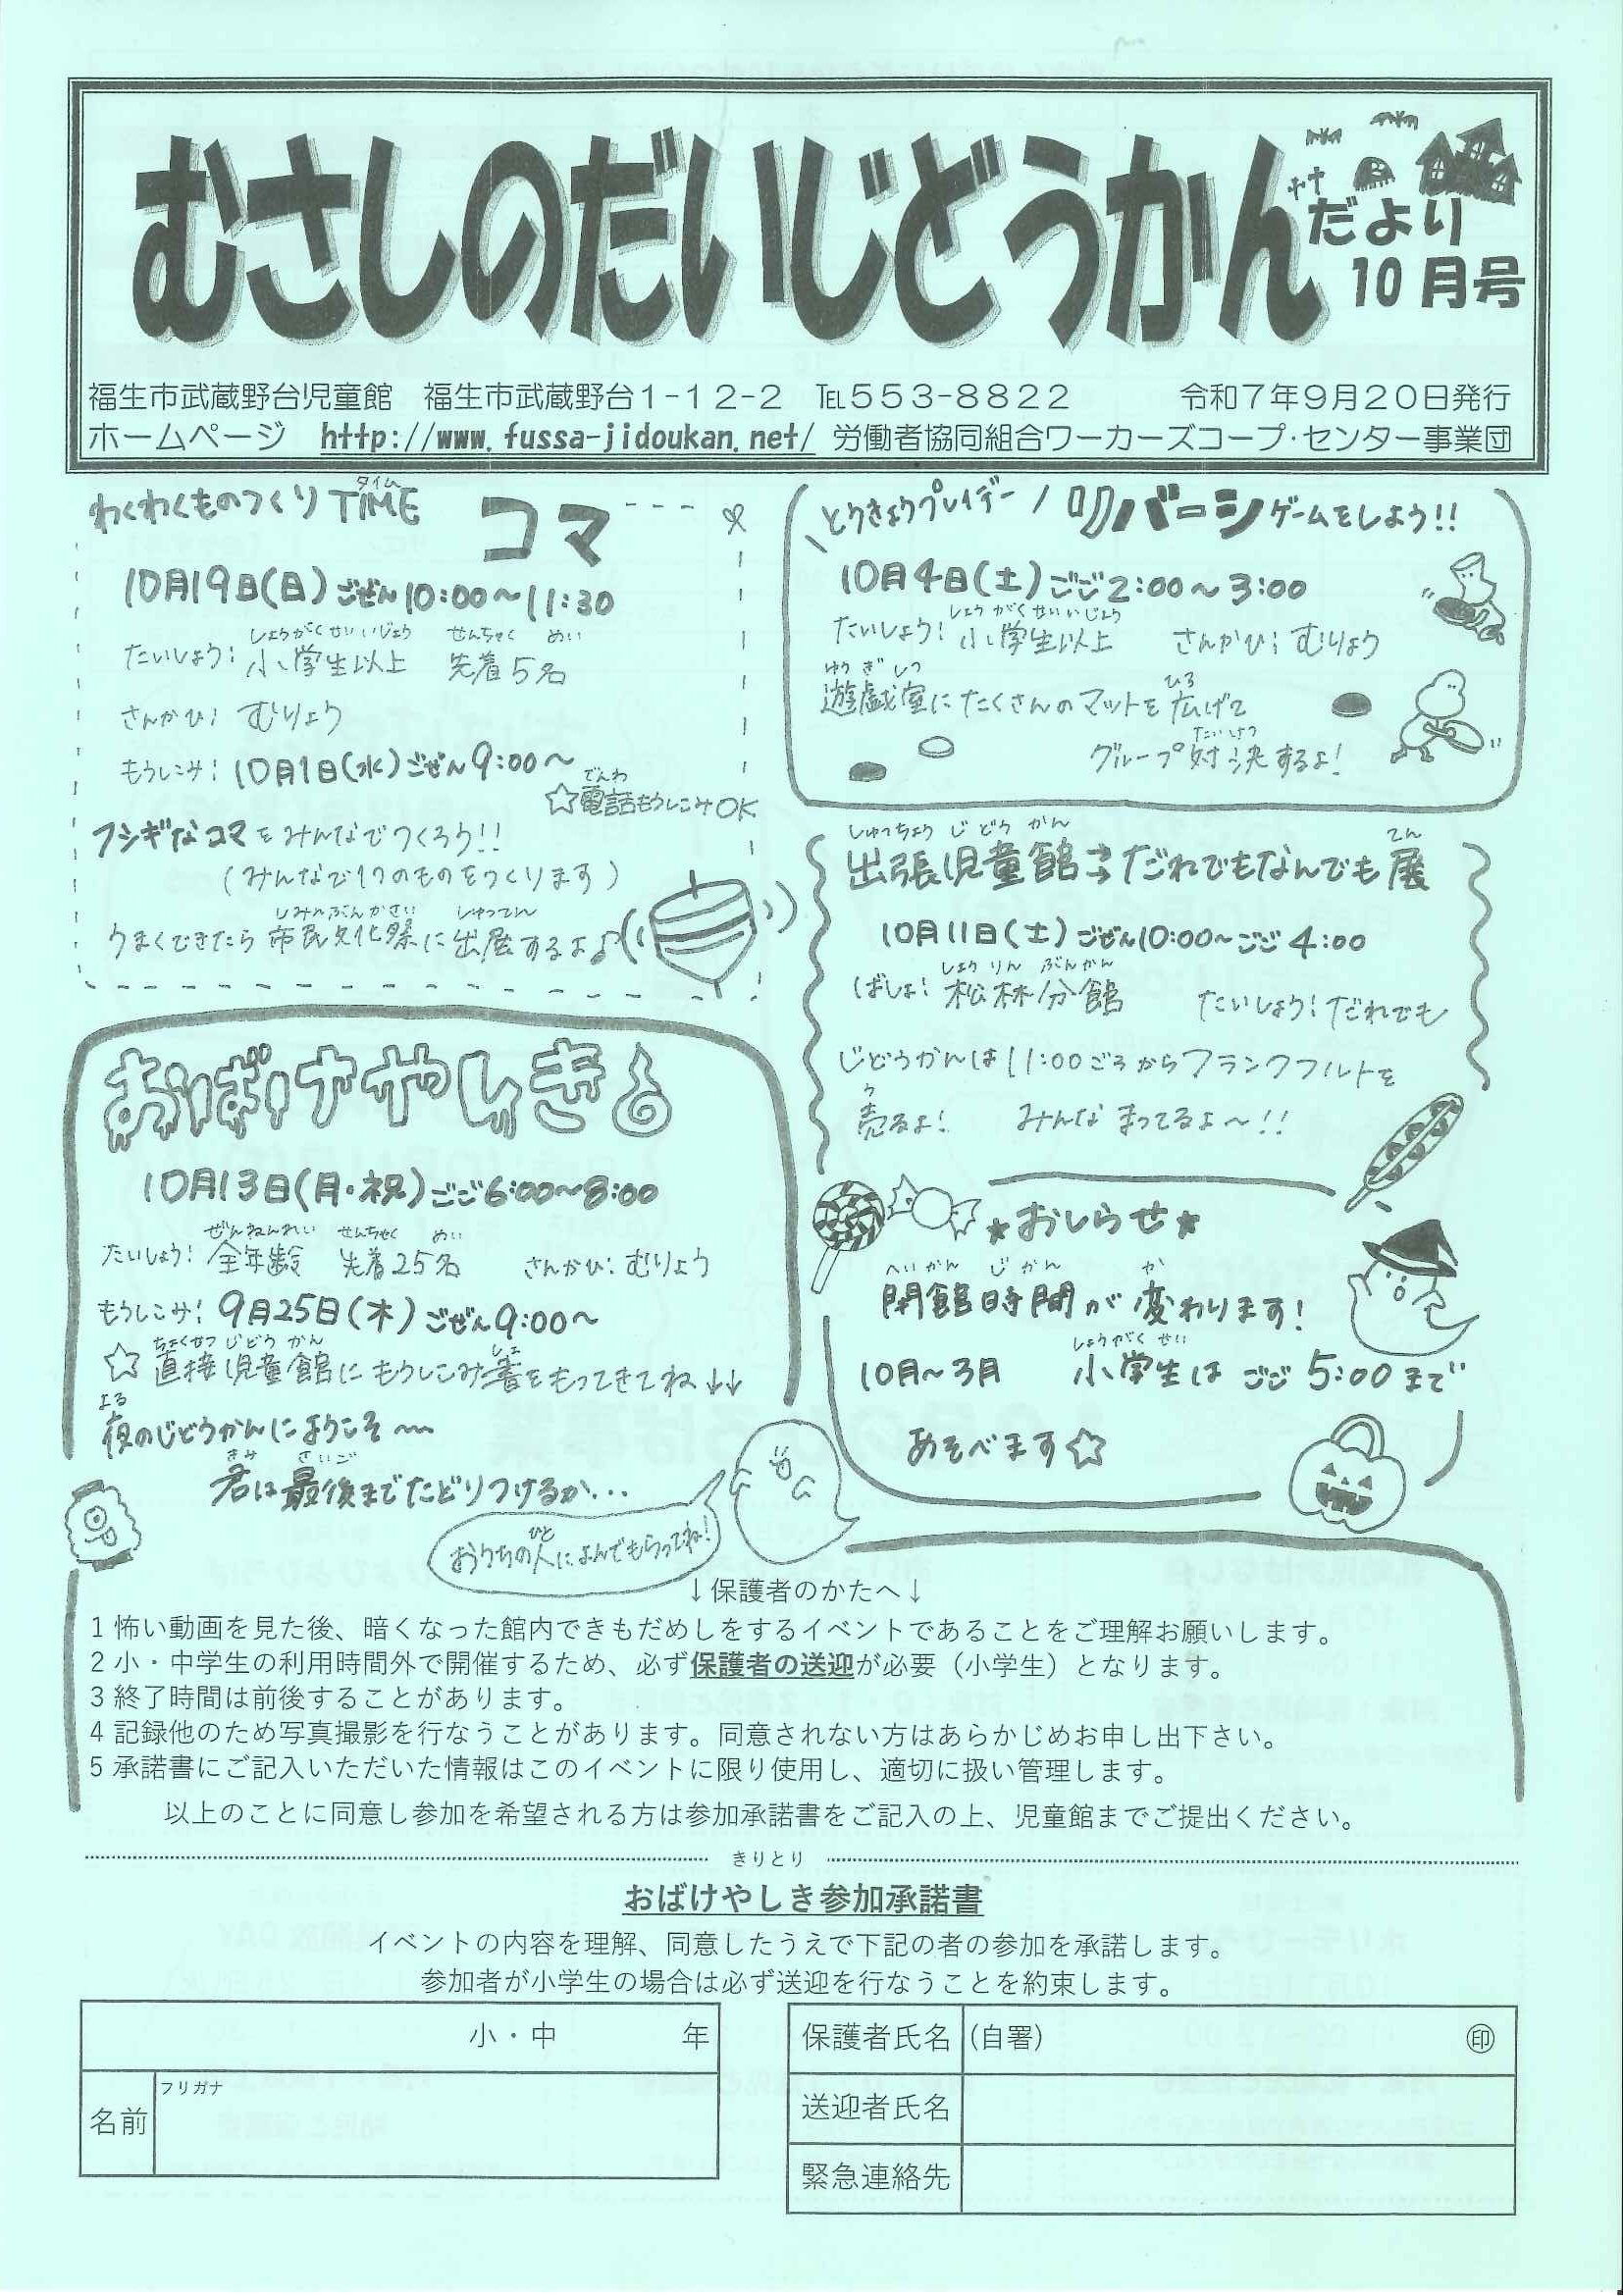 むさしのだいじどうかん
だより
10月号
福生市武蔵野台児童館　福生市武蔵野台1-12-2　℡553-8822　令和7年9月20日発行
ホームページ　http://www.fussa-jidoukan.net/ 労働者協同組合ワーカーズコープ・センター事業団
わくわくものつくりTIME コマ
タイム
10月19日(日)ごぜん10:00〜11:30
しょうがくせいいじょう　せんちゃく　めい
たいしょう:小学生以上　先着5名
さんかひ:むりょう
もうしこみ:10月1日(水)ごぜん9:00〜
でんわ
☆電話もうしこみOK
フシギなコマをみんなでつくろう!!
(みんなで1つのものをつくります)
しみんぶんかさい　しゅってん
うまくできたら市民文化祭に出展するよ♪
とうきょうプレイデー/リバーシゲームをしよう!!
10月4日(土)ごご2:00〜3:00
しょうがくせいいじょう
たいしょう:小学生以上　さんかひ:むりょう
ゆうぎしつ　ひろ
遊戯室にたくさんのマットを広げて
たいけつ
グループ対決するよ!
しゅっちょうじどうかん　てん
出張児童館→だれでもなんでも展
10月11日(土)ごぜん10:00〜ごご4:00
しょうりんぶんかん
ばしょ:松林分館　たいしょう:だれでも
じどうかんは11:00ごろからフランクフルトを
う
売るよ!　みんなまってるよ〜!!
おばけやしき
10月13日(月・祝)ごご6:00〜8:00
ぜんねんれい　せんちゃく　めい
たいしょう:全年齢　先着25名　さんかひ:むりょう
もうしこみ:9月25日(木)ごぜん9:00〜
ちょくせつじどうかん　しょ
☆直接児童館にもうしこみ書をもってきてね↓↓
よる
夜のじどうかんにようこそ〜
きみ　さいご
君は最後までたどりつけるか...
ひと
おうちの人によんでもらってね!
★おしらせ★
へいかんじかん　か
閉館時間が変わります!
しょうがくせい
10月〜3月　小学生はごご5:00まで
あそべます☆
↓保護者のかたへ↓
1 怖い動画を見た後、暗くなった館内できもだめしをするイベントであることをご理解お願いします。
2 小・中学生の利用時間外で開催するため、必ず保護者の送迎が必要（小学生）となります。
3 終了時間は前後することがあります。
4 記録他のため写真撮影を行なうことがあります。同意されない方はあらかじめお申し出下さい。
5 承諾書にご記入いただいた情報はこのイベントに限り使用し、適切に扱い管理します。
以上のことに同意し参加を希望される方は参加承諾書をご記入の上、児童館までご提出ください。
きりとり
おばけやしき参加承諾書
イベントの内容を理解、同意したうえで下記の者の参加を承諾します。
参加者が小学生の場合は必ず送迎を行なうことを約束します。
小・中　年
フリガナ
名前
保護者氏名 (自署) ㊞
送迎者氏名
緊急連絡先